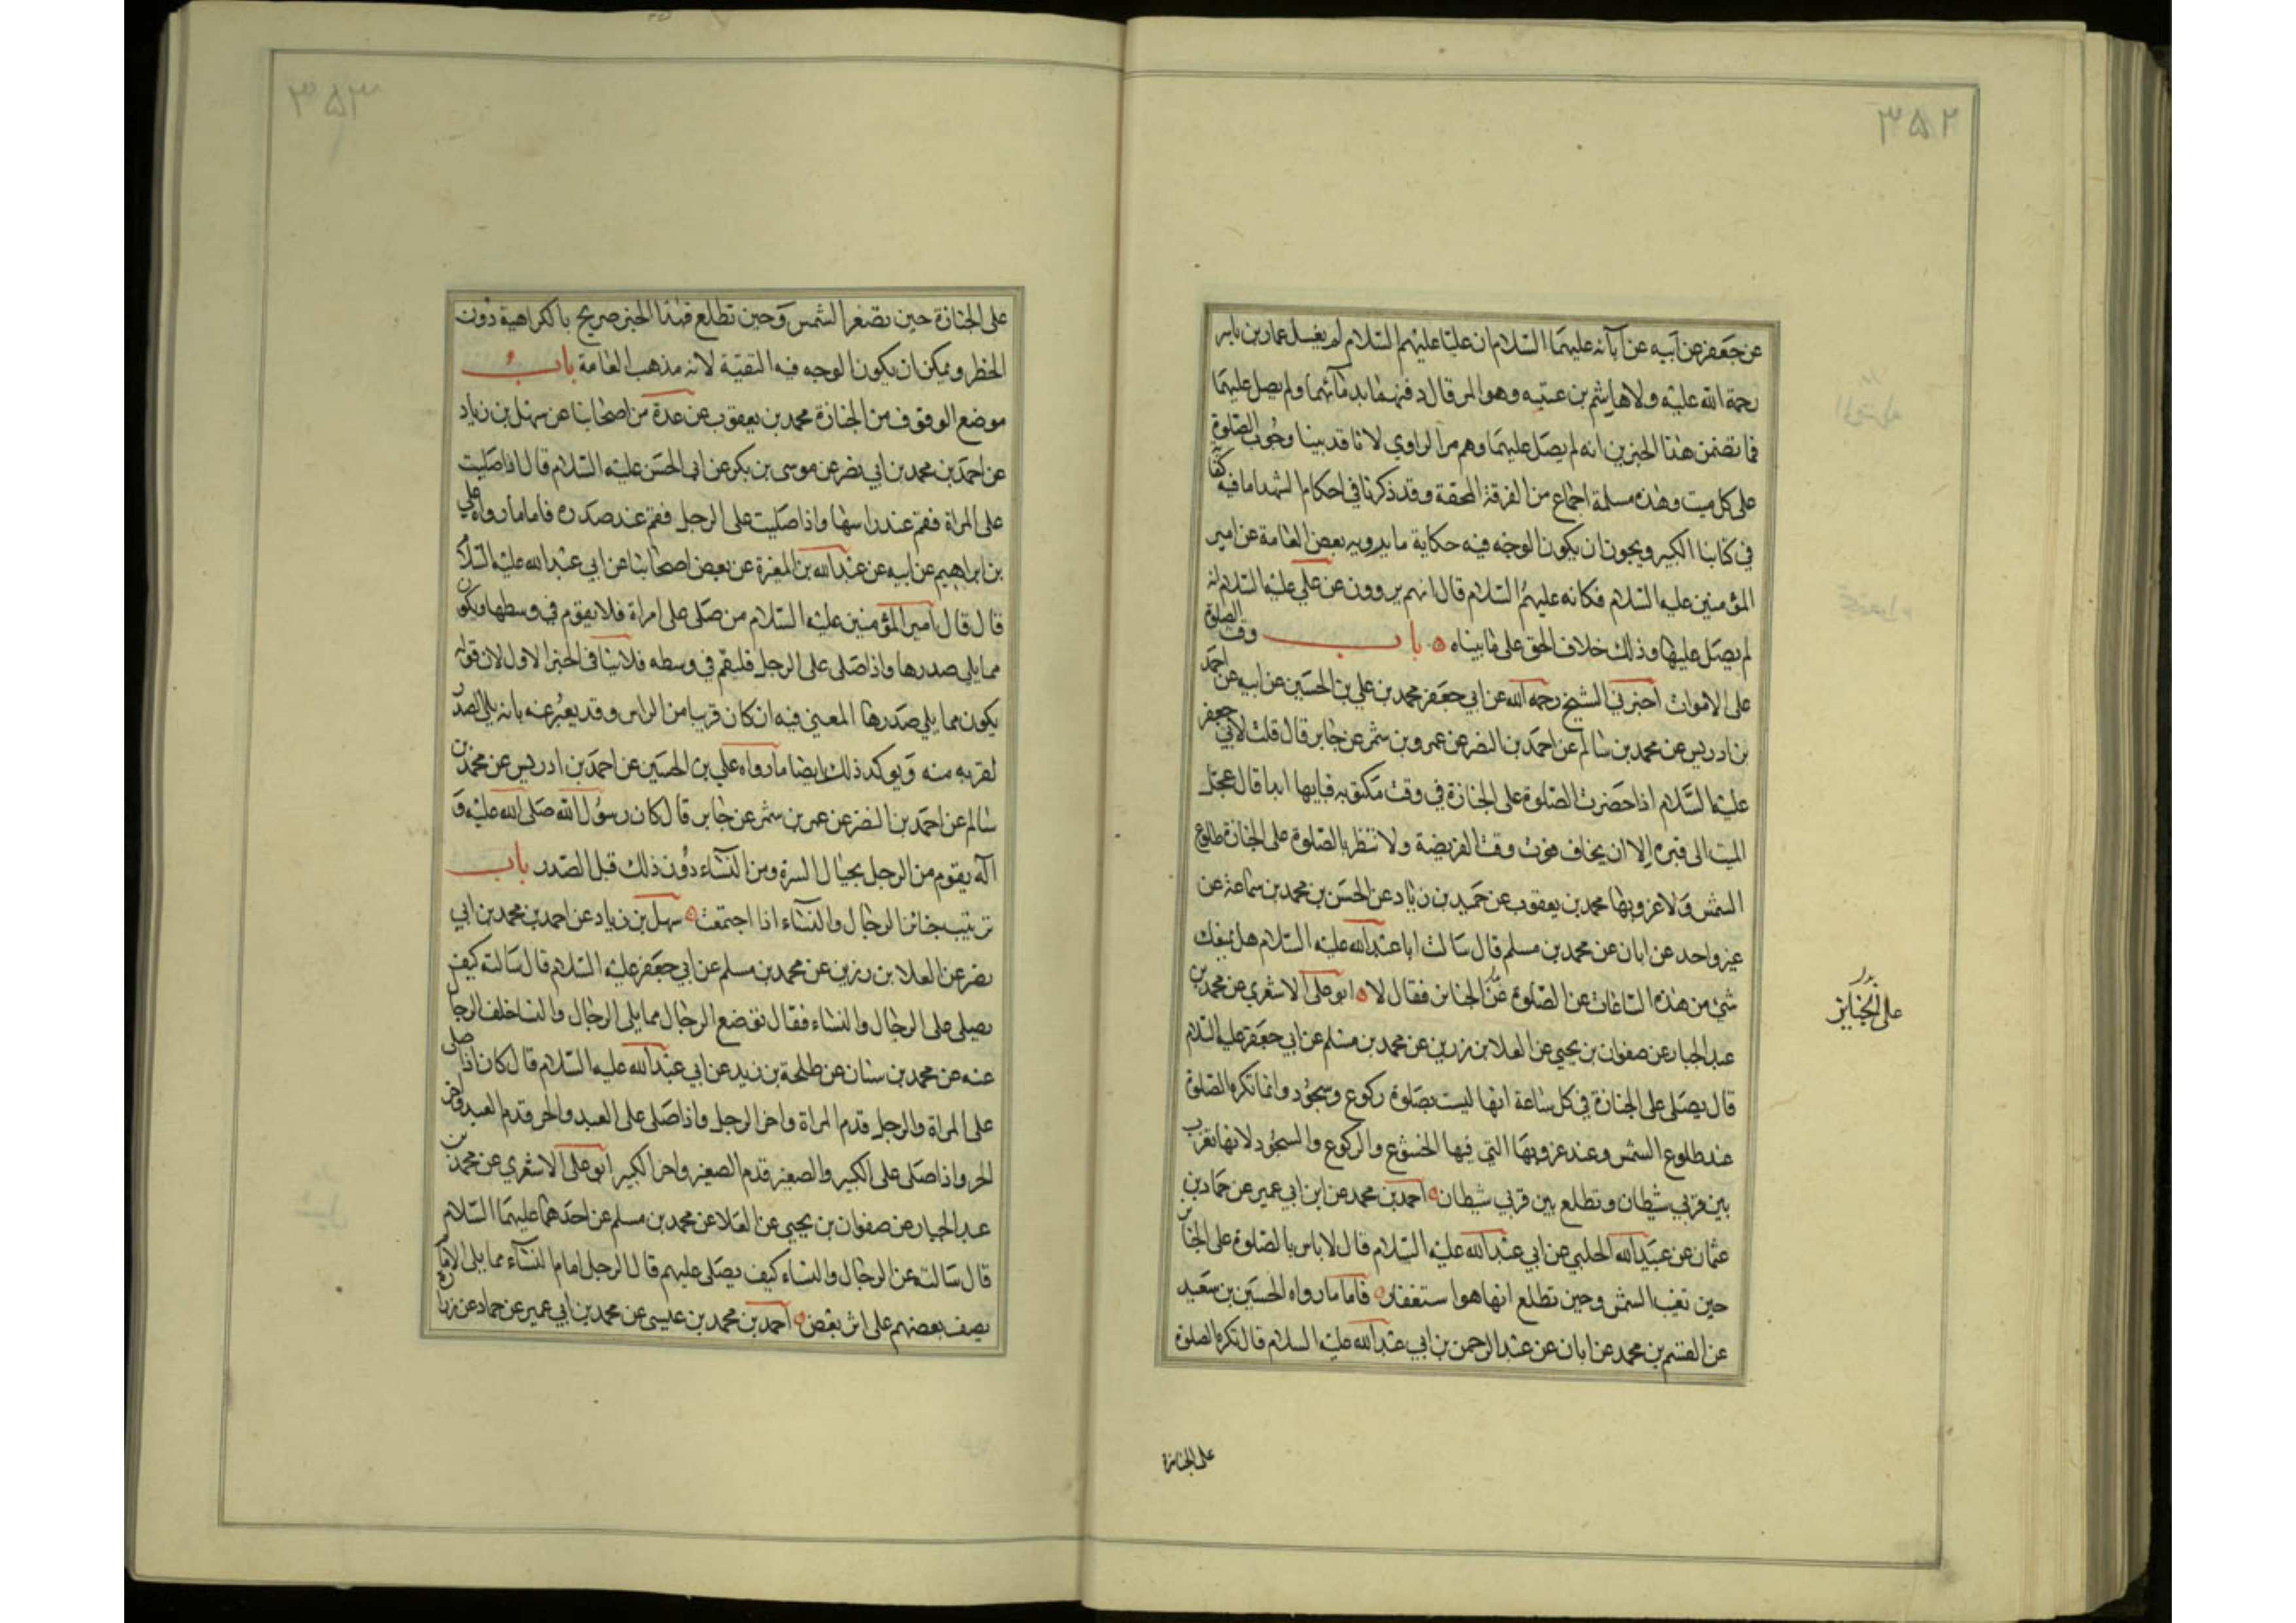 ٣٥٢
عن جعفر عن ابيه عن آبائه عليهما السلام ان عليا عليهم السلام لم يغسل عمار بن ياسر
رحمة الله عليه ولا هاشم بن عتبه وهو المرقال دفنهما بدمائهما ولم يصل عليهما
فما تضمن هذا الخبرين انه لم يصل عليهما وهم من الراوي لانا قد بينا وجوب الصلوة
على كل ميت وهذه مسلمة اجماع من الفرقة المحقة وقد ذكرنا في احكام الشهداء ما فيه كفاية
في كتابنا الكبير ويجوز ان يكون الوجه فيه حكاية ما يرويه بعض العامة عن امير
المؤمنين عليه السلام فكانه عليهم السلام قال انهم يروون عن علي عليه السلام انه
لم يصل عليهما وذلك خلاف الحق على ما بيناه باب وقت الصلوة
على الاموات اخبرني الشيخ رحمه الله عن ابي جعفر محمد بن علي بن الحسين عن ابيه عن احمد
بن ادريس عن محمد بن سالم عن احمد بن النضر عن عمرو بن شمر عن جابر قال قلت لابي جعفر
عليه السلام اذا حضرت الصلوة على الجنازة في وقت مكتوبه فبايها ابدا قال عجل
الميت الى قبره الا ان يخاف فوت وقت الفريضة ولا تنتظر بالصلوة على الجنازة طلوع
الشمس ولا غروبها محمد بن يعقوب عن حميد بن زياد عن الحسن بن محمد بن سماعة عن
غير واحد عن ابان عن محمد بن مسلم قال سالت ابا عبد الله عليه السلام هل يمنعك
شئ من هذه الساعات عن الصلوة عن الجنائز فقال لا ابو علي الاشعري عن محمد بن
عبد الجبار عن صفوان بن يحيى عن العلا بن رزين عن محمد بن مسلم عن ابي جعفر عليه السلام
قال يصلى على الجنازة في كل ساعة انها ليست بصلوة ركوع وسجود وانما تكره الصلوة
عند طلوع الشمس وعند غروبها التي فيها الخشوع والركوع والسجود لانها تغرب
بين قرني شيطان وتطلع بين قرني شيطان احمد بن محمد عن ابن ابي عمير عن حماد بن
عثمان عن عبيد الله الحلبي عن ابي عبد الله عليه السلام قال لا باس بالصلوة على الجنائز
حين تغيب الشمس وحين تطلع انما هو استغفار فاما ما رواه الحسين بن سعيد
عن القسم بن محمد عن ابان عن عبد الرحمن بن ابي عبد الله عليه السلام قال تكره الصلوة
على الجنايز
على الجنازة
٣٥٣
على الجنازة حين تصفر الشمس وحين تطلع فهذا الخبر صريح بالكراهية دون
الحظر ويمكن ان يكون الوجه فيه التقية لانه مذهب العامة باب
موضع الوقوف من الجنازة محمد بن يعقوب عن عدة من اصحابنا عن سهل بن زياد
عن احمد بن محمد بن ابي نضر عن موسى بن بكر عن ابي الحسن عليه السلام قال اذا صليت
على المراة فقم عند راسها واذا صليت على الرجل فقم عند صدره فاما ما رواه علي
بن ابراهيم عن ابيه عن عبد الله بن المغيرة عن بعض اصحابنا عن ابي عبد الله عليه السلام
قال قال امير المؤمنين عليه السلام من صلى على امراة فلا يقوم في وسطها ويكون
مما يلي صدرها واذا صلى على الرجل فليقم في وسطه فلا ينافى الخبر الاول لان قوله
يكون مما يلي صدرها المعني فيه ان كان قريبا من الراس وقد يعبر عنه بانه يلي الصدر
لقربه منه ويوكد ذلك ايضا ما رواه علي بن الحسين عن احمد بن ادريس عن محمد بن
سالم عن احمد بن النضر عن عمر بن شمر عن جابر قال كان رسول الله صلى الله عليه و
آله يقوم من الرجل بحيال السرة ومن النساء دون ذلك قبل الصدر باب
ترتيب جنائز الرجال والنساء اذا اجتمعت سهل بن زياد عن احمد بن محمد بن ابي
نضر عن العلا بن رزين عن محمد بن مسلم عن ابي جعفر عليه السلام قال سالته كيف
يصلى على الرجال والنساء فقال توضع الرجال مما يلي الرجال والنسا خلف الرجال
عنه عن محمد بن سنان عن طلحة بن زيد عن ابي عبد الله عليه السلام قال كان اذا صلى
على المراة والرجل قدم المراة واخر الرجل واذا صلى على العبد والحر قدم العبد واخر
الحر واذا صلى على الكبير والصغير قدم الصغير واخر الكبير ابو علي الاشعري عن محمد بن
عبد الجبار عن صفوان بن يحيى عن العلا عن محمد بن مسلم عن احدهما عليهما السلام
قال سالته عن الرجال والنساء كيف يصلى عليهم قال الرجل امام النساء مما يلي الامام
يصف بعضهم على اثر بعض احمد بن محمد بن عليسى عن محمد بن ابي عمير عن حماد عن زرارة